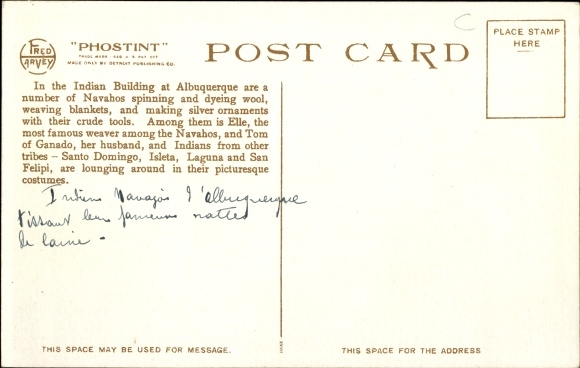 FRED HARVEY
"PHOSTINT"
TRADE MARK - REG U S PAT OFF
MADE ONLY BY DETROIT PUBLISHING CO.
POST CARD
C
PLACE STAMP
HERE
In the Indian Building at Albuquerque are a
number of Navahos spinning and dyeing wool,
weaving blankets, and making silver ornaments
with their crude tools. Among them is Elle, the
most famous weaver among the Navahos, and Tom
of Ganado, her husband, and Indians from other
tribes – Santo Domingo, Isleta, Laguna and San
Felipi, are lounging around in their picturesque
costumes.
Indiens Navajos d'albuquerque
tissant leurs fameuses nattes
de laine -
THIS SPACE MAY BE USED FOR MESSAGE.
THIS SPACE FOR THE ADDRESS